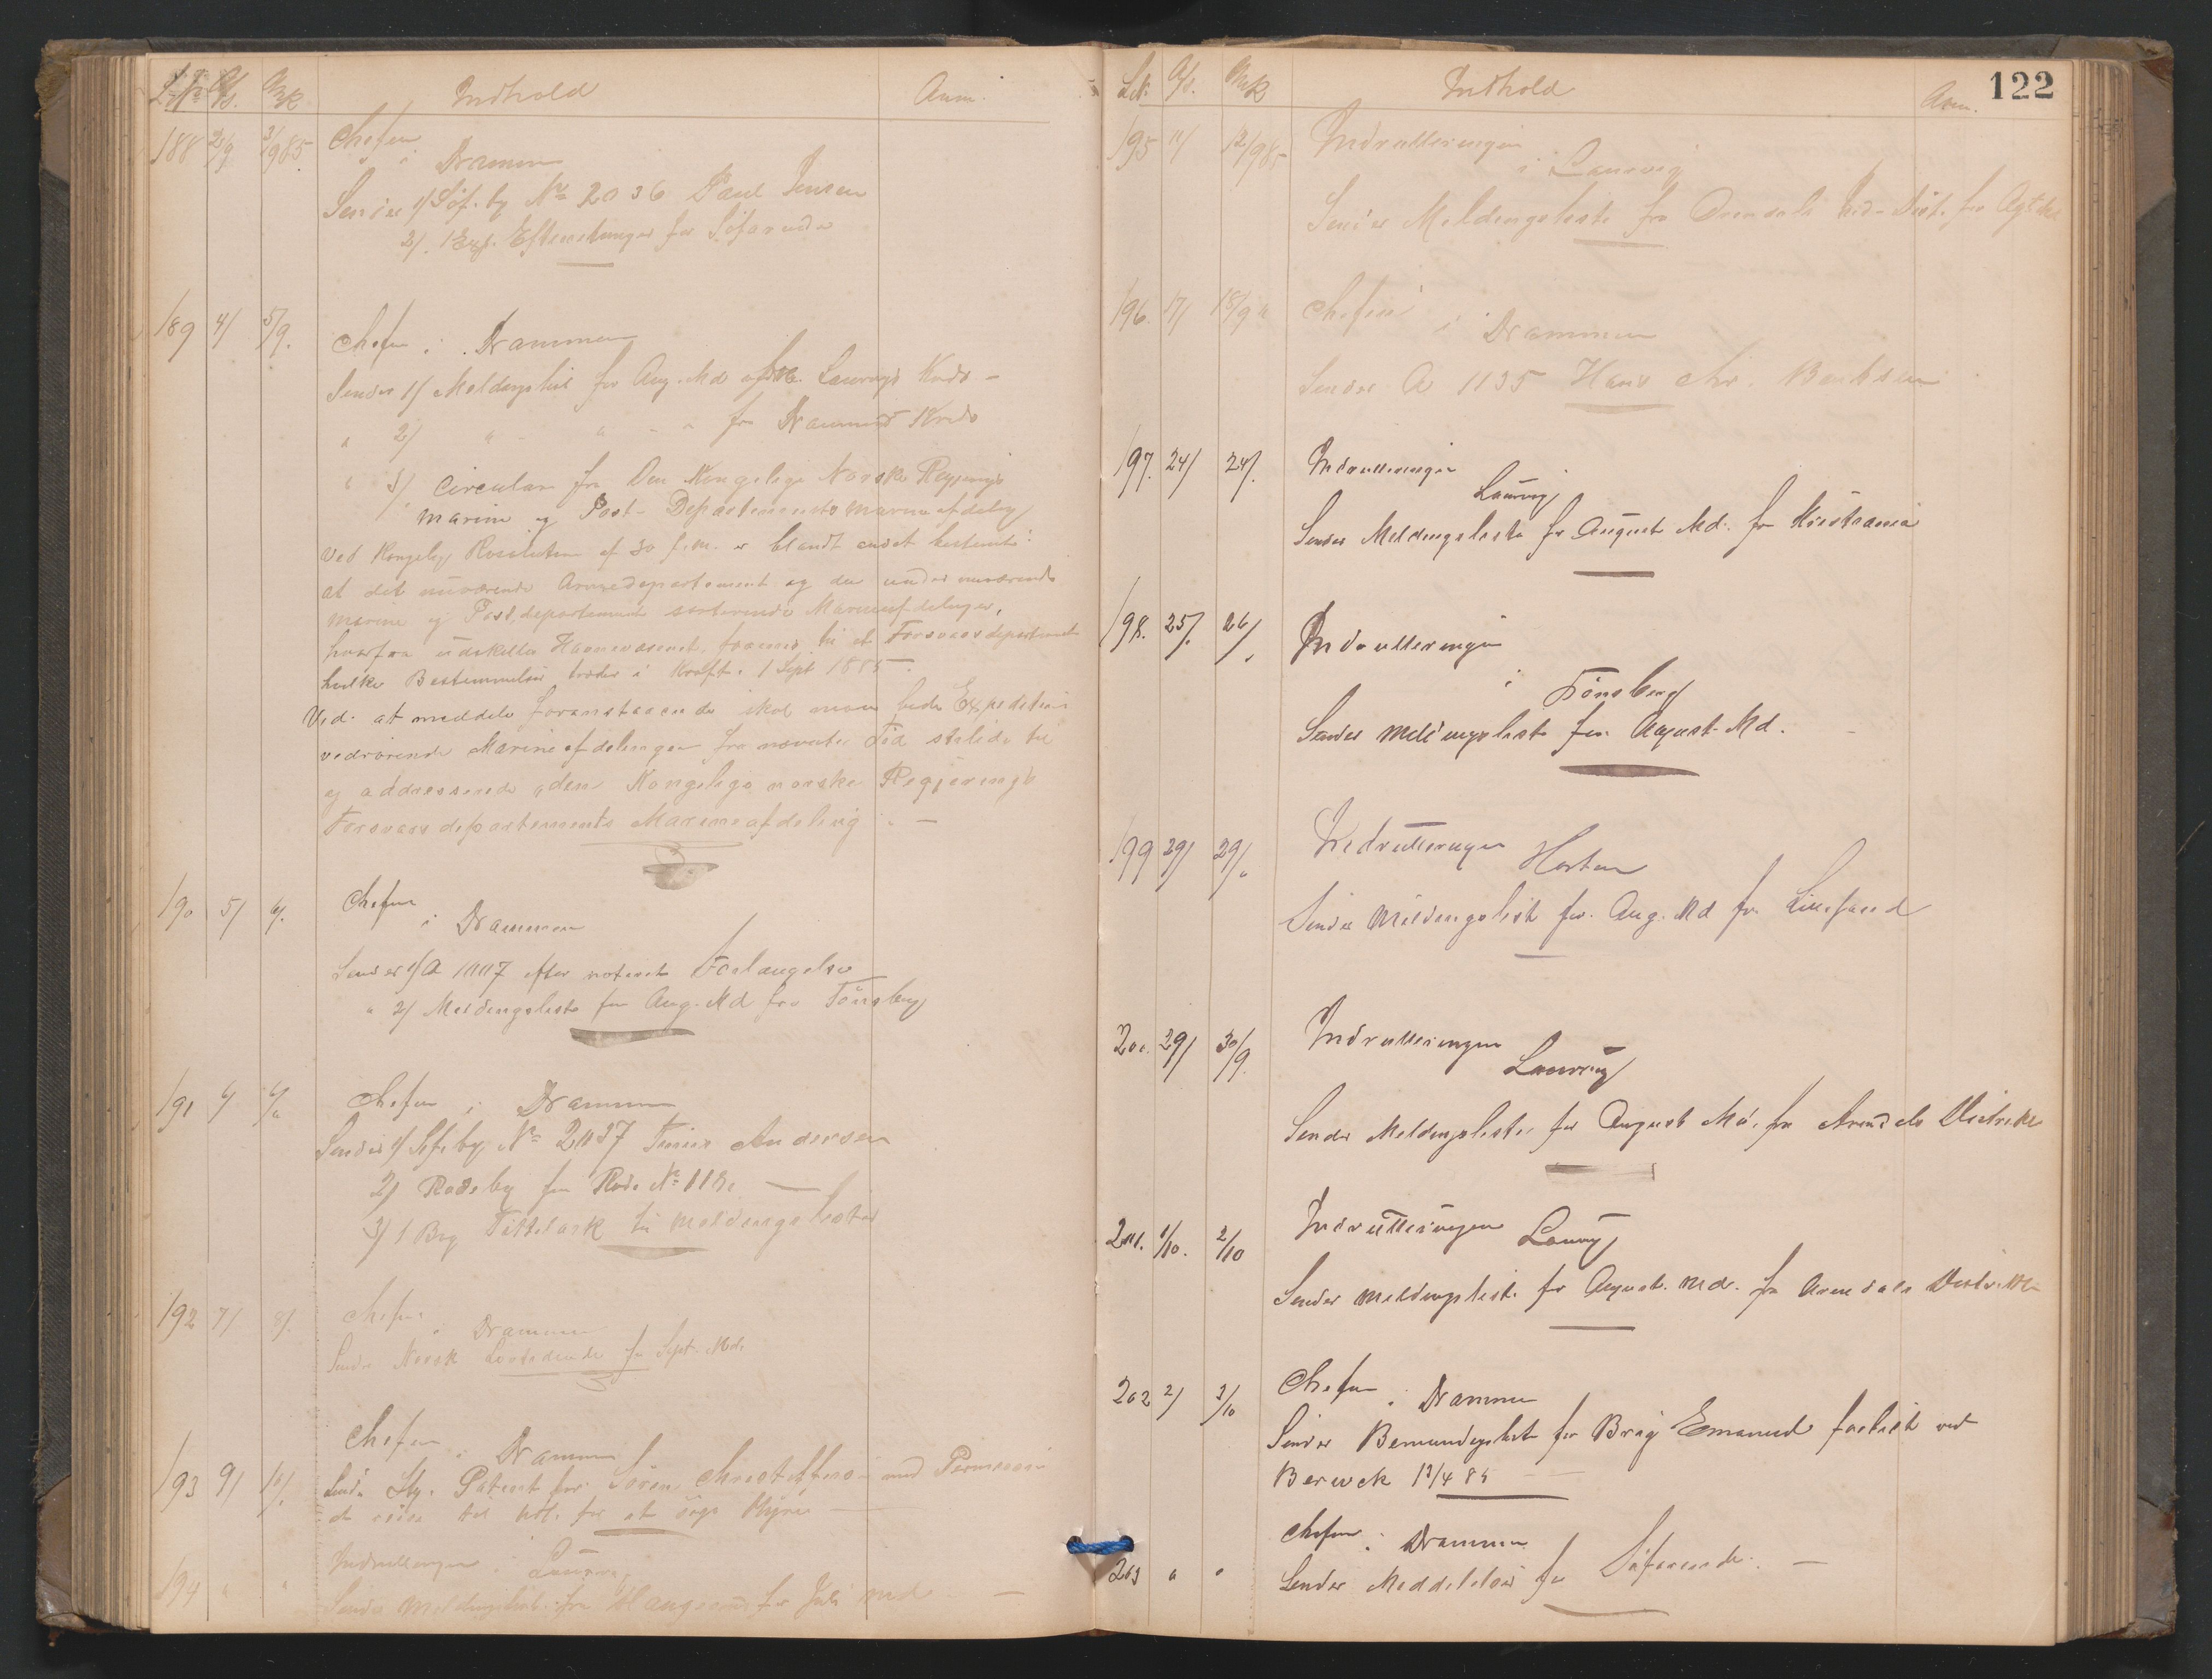 Indhold Anm.
188 3/9 85 Chefen
i Drammen
Sender 1/ Søf. bg No 2036 Paul Jensen
2/ 1 Ex. Efterretninger for Søfarende
189 4/ 5/9. Chefen i Drammen
Sender 1/ Meldingslist for Aug. Md Laurvigs Kreds -
" 2/ " - " - " fra Drammens Kreds
" 3/ Circulær fra Den Kongelige Norske Regjerings
Marine og Post-Departements Marineafdeling
Ved Kongelig Resolution af 30 f.m. er blandt andet bestemt:
at det nuværende Armedepartement og den under nuværende
Marine og Postdepartement sorterende Marineafdelinger,
hvorfra udskilles Havnevæsenet, forenes til et Forsvarsdepartement
hvilken Bestemmelse træder i Kraft. 1 Sept 1885.
Ved at meddele foranstaaende skal man bede Expeditioner
vedrørende Marineafdelingen fra nævnte Tid stilede til
og addresserede "den Kongelige norske Regjerings
Forsvarsdepartements Marineafdeling". -
190 5/ 6/. Chefen
i Drammen
Sender 1/ A 1007 efter noteret Forlangelse
" 2/ Meldingsliste for Aug. Md fra Tönsberg
191 6/ 6/" Chefen i Drammen
Sender 1/ Søf. bg No 2037 Andersen
2/ Rodebg for Rode No 118. -
3/ 1 Bog Tittelark til meldingslister
192 7/ 8/. Chefen
i Drammen
Sender Norsk for Sept. Md.
193 9/ 10/. Chefen i Drammen
Sender Sty. Patent for Sören Christoffersen med Permission
at reise til for at søge Hyre
194 " " Indrulleringen i Laurvig
Sender Meldingslist fra Haugesund for Juli md -
L.No. Indhold Anm. 122
195 11/ 12/9 85 Indrulleringen
i Laurvig
Sender Meldingsliste fra Arendals for
196. 17/ 18/9 " Chefen
i Drammen
Sender A 1135 Hans Chr. Bentsen
197. 24/ 24/. Indrulleringen
Laurvig
Sender Meldingsliste for August Md. fra Kristiania
198. 25/. 26/. Indrulleringen
i Tönsberg
Sender meldingsliste for August Md.
199 29/ 29/" Indrulleringen Horten
Sender meldingslist for Aug. Md fra Lillesand
200. 29/ 30/9. Indrulleringen
Laurvig
Sender Meldingsliste for August Md. fra Arendals Distrikt
201. 1/10. 2/10 Indrulleringen Laurvig
Sender meldingsliste for August. Md. fra Arendals Distrikt
202 2/ 3/10 Chefen i Drammen
Sender Bemandingsliste for Brig Emanuel forlist ved
Berwck 13/4 85
203 " " Chefen i Drammen
Sender Meddelelser for Søfarende. -